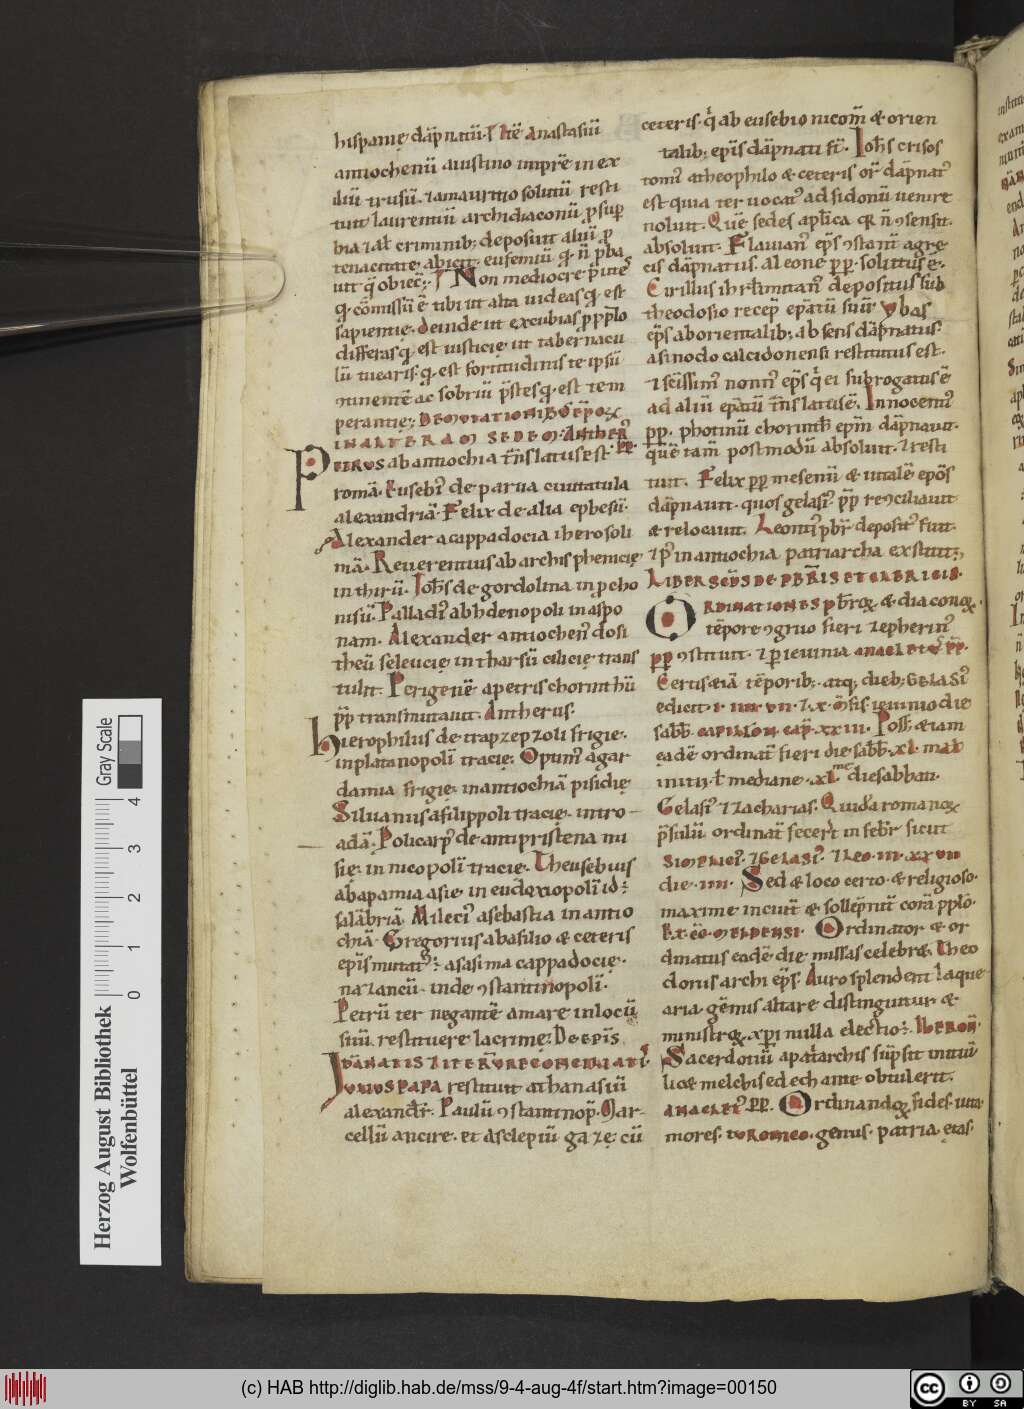 hispanię dāpnatū. Itē Anastasiū
antiochenū auistino impr̄e in ex
iliū trusū. ⁊ a mauritio solutū resti
tuit laurentiū archidiaconū ꝓ sup̄
bia ⁊ al' criminib; deposuit aliū ꝓ
tenacitate abiecit. eusemiū q̄ n̄ ꝓba
uit q̄ obiec̄. Non mediocre p̄ uite
q̄ cōmissū ē tibi ut alta uideas q̄ est
sapientię. deinde ut excubias ꝓ pplo
differas q̄ est iusticię ut tabernacu
lū tuearis. q̄ est fortitudinis te ipsū
9tinentē ac sobriū p̄stes q̄ est tem
perantię. DE MUTATIONIBUS EP̄OꝜ
IN ALTERAM SEDEM. Anther9 PP.
Petrus ab antiochia t̄nslatus est
romā. Eusebi9 de parua ciuitatula
alexandriā. Felix de alia ephesū.
Alexander a cappadocia iherosoli
mā. Reuerentius ab archis phenicię
in thirū. Ioh̄s de gordolina in pcho
nisū. Palladi9 ab helenopoli in aspo
nam. Alexander antiochen9 dosi
theū seleucię in tharsū cilicię trans
tulit. Perigenē a petris chorinthū
p̄p transmutauit. Antherus.
Hierophilus de trapzepzoli frigie.
in platanopolī tracię. Optim9 agar
damia frigię in antiochiā pisidię
Siluanus a filippoli tracię. intro
adā. Policarp9 de antipristena mi
się in nicopolī tracię. Theusebius
ab apamia asie in eudoxiopolī id;
salābriā. Mileci9 a sebastia in antio
chiā. Gregorius a basilio & ceteris
epīs mutat9. a sasima cappadocię.
na⁊ancū. inde 9stantinopolī.
Petrū ter negantē amare in locū
suū restituere lacrimę. De epīs
DĀNATIS ⁊ ITERŪ RECONCILIATIS.
IULIUS PAPA restituit athanasiū
alexandr̄. Paulū 9stantinop̄. Mar-
cellū ancire. et Asclepiū gazę. cū
ceteris. q̄ ab eusebio nicom̄ & orien
talib; epīs dāpnati st̄. Ioh̄s crisos
tom9 a theophilo & ceteris or̄ dāpnat9
est quia ter uocat9 ad sidonū uenire
noluit. Quē sedes aplica q̄ n̄ 9sensit.
absoluit. Flauian9 ep̄s 9stant̄ agrę
cis dāpnatus. a leone pp. solitt9 ē.
Cirillus ihrl̄imitan9 depositus sub
theodosio recep̄ ep̄atū suū. Ybas
ep̄s ab orientalib; absens dāpnatus.
a sinodo calcidonensi restitutus est.
⁊ sc̄issim9 nonn9 ep̄s q̄ ei subrogatus ē
ad aliū ep̄atū t̄nslatus ē. Innocenti9
pp. photinū chorinth̄ ep̄m dāpnauit.
quē tam̄ postmodū absoluit. ⁊ resti
tuit. Felix pp mesenū & uitalē ep̄os
dāpnauit. quos gelasi9 p̄p re9ciliauit
& relocauit. Leonti9 pbr̄ deposit9 fuit.
⁊ p9 in antiochia patriarcha exstitit.
LIBER SC̄DS DE PBR̄IS ET CLERICIS.
ORDINATIONES pbr̄oꝝ & diaconoꝝ
tēpore 9gruo fieri ⁊epherin9
pp 9stituit. ⁊ p ieiunia ANACLET9 PP.
Certis etiā tēporib; atq; dieb; GELASI9
edicit. I. IIII. VII. ⁊ X. m̄sis. ieiunio die
sabb̄. CAPITLŌN CAP̄. XXIII. Poss̄ etiam
eadē ordinat̄ fieri die sabb̄. XL. mai
initii. ł mediane. XLme die sabbati.
Gelasi9 ⁊ zacharias. Quidā romanoꝝ
p̄sulū ordinat̄ fecer̄t in febr̄ sicut
SIMPLICI9. ⁊ GELASI9. ⁊ LEO. III. XXVII
die. IIII. Sed & loco certo & religioso.
maxime in ciuit̄ & sollēpnit̄ corā pplo.
EX 9C̄. MELDENSI. Ordinator & or
dinatus eadē die missas celebrēt. Theo
dorus archi ep̄s. Auro splendent laque
aria gēmis altare distinguitur &
ministroꝝ xpi nulla electio ē. IERON̄.
Sacerdotiū a patarchis sūpsit initiū
licet melchisedech ante obtulerit.
ANACLET9. PP. Ordinandoꝝ fides. uita.
mores. tuRomeo. genus. patria. ętas.
Herzog August Bibliothek
Wolfenbüttel
Gray Scale
0 1 2 3 4
(c) HAB http://diglib.hab.de/mss/9-4-aug-4f/start.htm?image=00150
cc BY SA